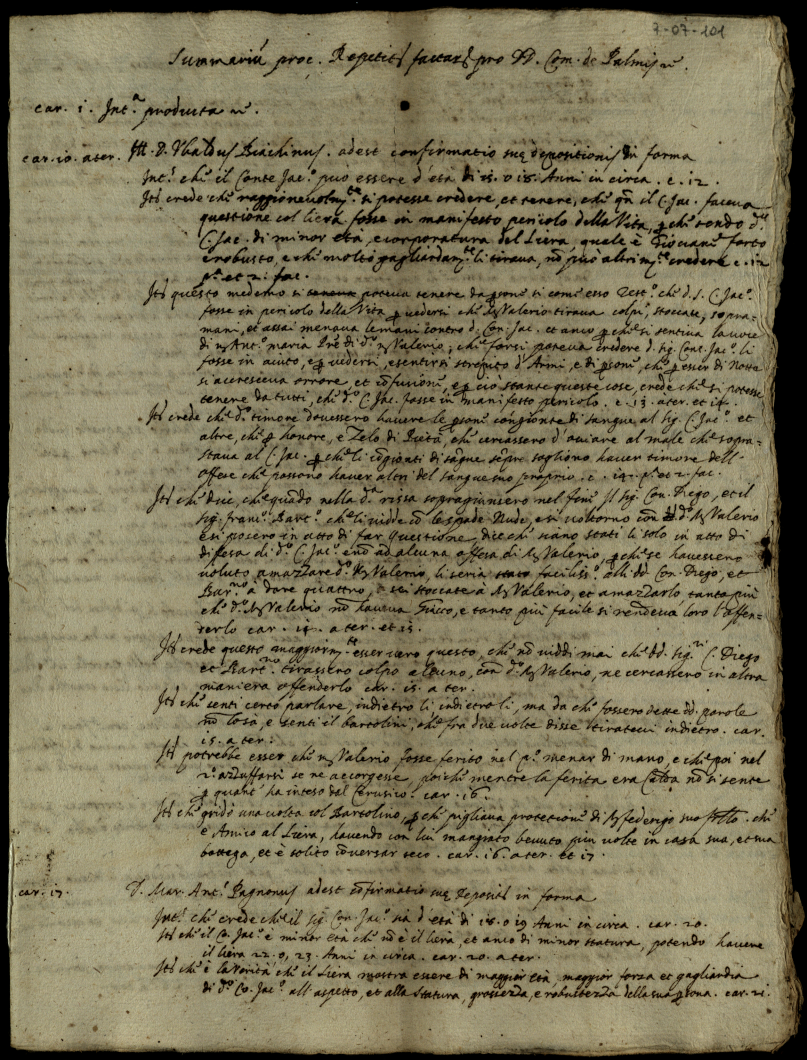 7-07-101
Summariũ proc. Repetit. factar. pro DD. Com. de Palmis
car. 1. Int.ª producta
car. 10. ater. Ill. D. Vbaldus Biachinus. adest confirmatio suę depositionis in forma
Int.º che il Conte Jac.º può essere d'età di 15. o 18. Anni in circa. c. 12.
Itẽ crede che raggionevolm.te si potesse credere, et tenere, che qñ il C. Jac. faceva
questione col liera fosse in manifesto pericolo della Vita, p che sendo d.º
C. Jac. di minor età, e corporatura del Liera, quale è Giovane forte
e robusto, e che molto gagliardam.te li tirava, nõ può altrim.te credere c. 12
p.ª et 2. fac.
Itẽ questo medemo si poteva tenere da psone si come esso Test.º che d. S. C. Jac.º
fosse in pericolo della Vita p vedersi che Valerio tirava colpi, stoccate, sopra-
mani, et assai menava le mani contro d. Con. Jac. et anco p che si sentiva la voce
di Ant.º maria Pre di d.º Valerio, che forsi poteva credere d. sig. Cont. Jac.º li
fosse in aiuto, e p vedersi, e sentirsi strepito d'Armi, e di psone, che p esser di Notte
si accresceva orrore, et cõfusione, e p ciò stante queste cose, crede che si potesse
tenere da tutti, che d.º C. Jac. fosse in manifesto pericolo. c. 13. ater. et 14.
Itẽ crede che d.º timore dovessero havere le psone congionte di sangue al sig. C. Jac.º et
altre, che p honore, e Zelo di Pietà, che cercassero d'oviare al male che sopra-
stava al C. Jac. p che li cõgionti di sãgue sẽpre sogliono haver timore dell'
offese che possono haver altri del sangue suo proprio. c. 14. p.ª et 2. fac.
Itẽ che dice, che quãdo nella d.ª rissa sopragiunsero nel fine il sig. Con. Diego, et il
sig. franc. Bart.º che li vidde cõ le spade Nude, e si voltorno con d.º Valerio
e si posero in atto di far questione, dice che siano stati li solo in atto di
difesa di d.º C. Jac.º e nõ ad alcuna offesa di Valerio, p che se havessero
voluto amazzare d.º Valerio, li seria stato facilis.º alli dd. Con. Diego, et
Bar.no à dare quattro, o sei stoccate à Valerio, et amazzarlo tanto più
che d.º Valerio nõ haveva Giacco, e tanto più facile si rendeva loro l'offen-
derlo car. 14. a ter. et 15.
Itẽ crede questo maggiorm.te esser vero questo, che nõ viddi mai che dd. sig.ri C. Diego
et Bart.no tirassero colpo alcuno, con d.º Valerio, ne cercassero in altra
maniera offenderlo car. 15. a ter.
Itẽ che senti certo parlare, indietro li, indietro li, ma da che fossero dette dd. parole
nõ lo sà, e senti il bartolini, che fra due volte disse ritiratevi indietro. car.
15. a ter.
Itẽ potrebbe esser che Valerio fosse ferito nel p.º menar di mano, e che poi nel
2.º azzuffarsi se ne accorgesse, poiche mentre la ferita era Calda nõ si sente
p quant' ha inteso dal Cerusico. car. 16.
Itẽ che gridò una volta col Bartolino, p che pigliava protettione di federigo suo frllo. che
è Amico al Liera, havendo con lui mangiato bevuto più volte in casa sua, et sua
bottega, et è solito cõversar seco. car. 16. a ter. et 17.
car. 17. D. Mar. Ant.º Pagnonus adest cõfirmatio suę Deposit. in forma
Int.º che crede che il sig. Con. Jac.º sia d'età di 18. o 19 Anni in circa. car. 20.
Itẽ che il Co. Jac.º è minor età che nõ è il liera, et anco di minor statura, potendo havere
il liera 22. o, 23. Anni in circa. car. 20. a ter.
Itẽ che è la verità che il Liera mostra essere di maggior età, maggior forza et gagliardia
di d.º Co. Jac.º all'aspetto, et alla statura, grossezza, e robustezza della sua psona. car. 21.